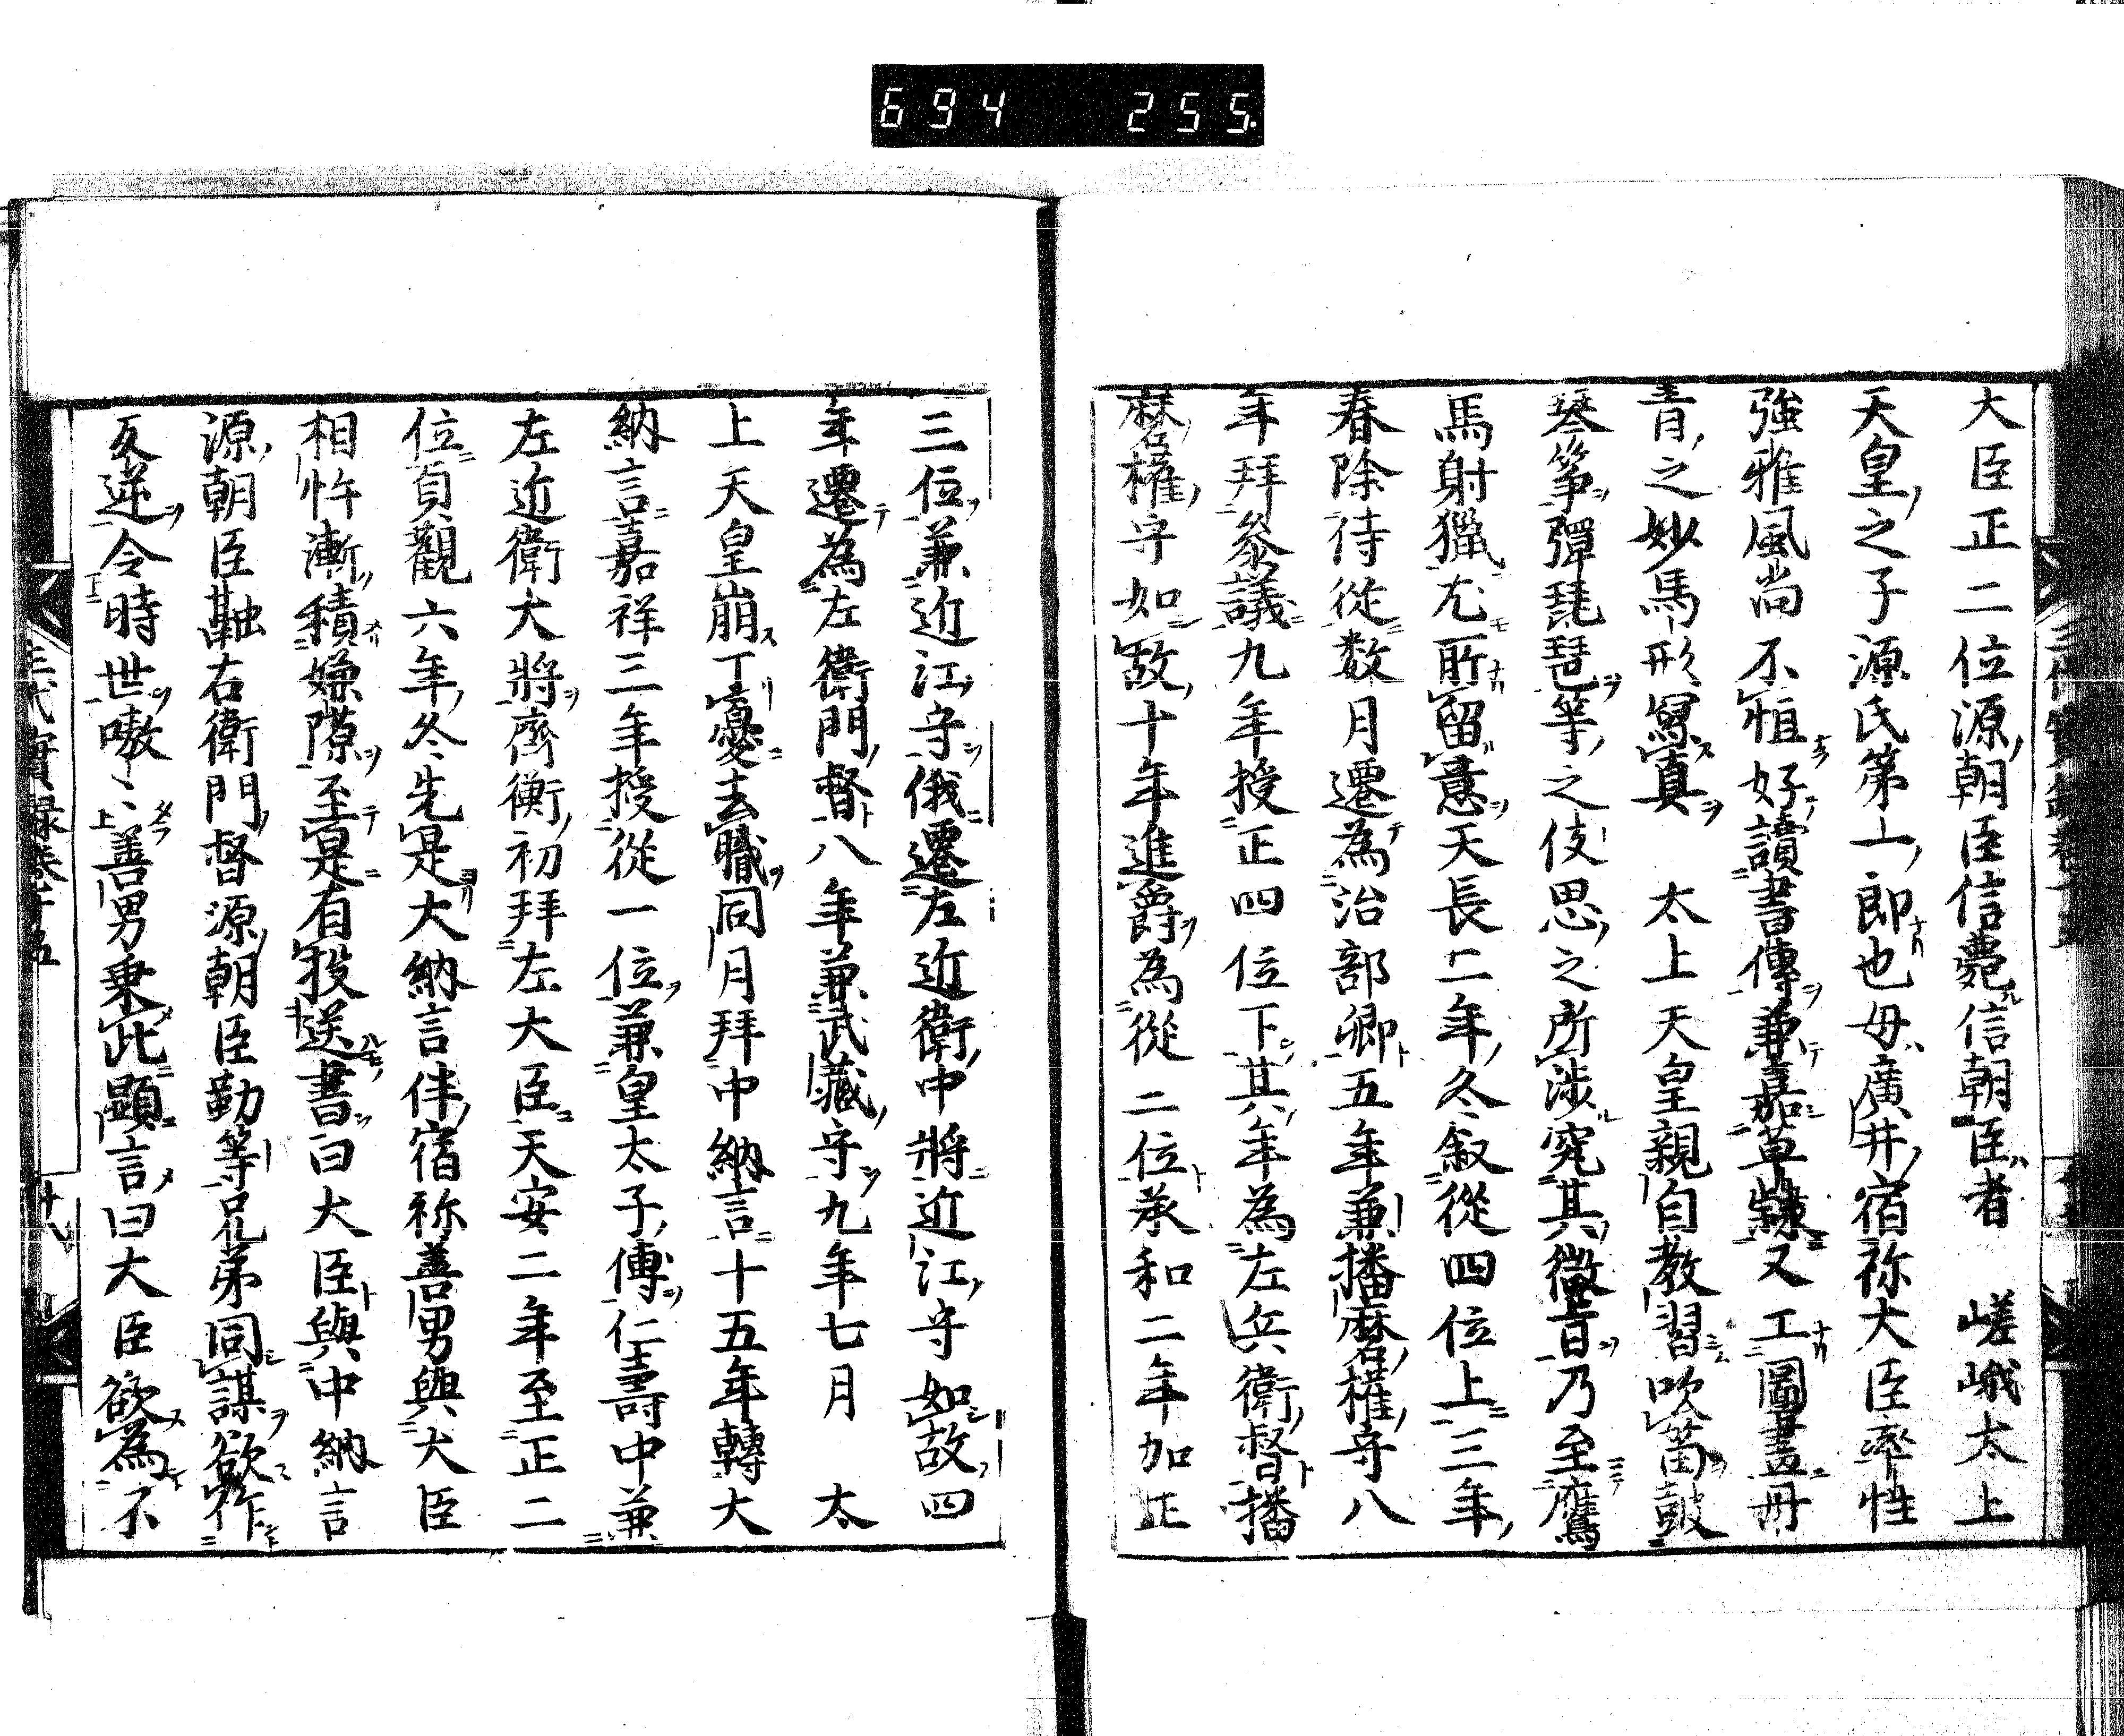 694 255
大臣正二位源朝臣信薨信朝臣者　嵯峨太上
天皇之子源氏第一郎也母廣井宿祢大臣率性
強雅風尚不恒好讀書傳兼嘉草隸又工圖畫丹
青之妙馬形寫真　太上天皇親自教習吹笛鼓
琴箏彈琵琶等之伎思之所渉究其微旨乃至鷹
馬射獵尤所留意天長二年冬叙從四位上三年
春除侍從数月遷為治部卿五年兼播磨權守八
年拜參議九年授正四位下其年為左兵衛督播
磨權守如故十年進爵為從二位承和二年加正
三位兼近江守俄遷左近衛中將近江守如故四
年遷為左衛門督八年兼武藏守九年七月　太
上天皇崩丁憂去職同月拜中納言十五年轉大
納言嘉祥三年授從一位兼皇太子傳仁壽中兼
左近衛大將齊衡初拜左大臣天安二年至正二
位貞觀六年冬先是大納言伴宿祢善男與大臣
相忤漸積嫌隙至是有投送書曰大臣與中納言
源朝臣融右衛門督源朝臣勤等兄弟同謀欲作
反逆令時世嗷〻善男乗此顯言曰大臣欲為不
三代實録卷十五
十八